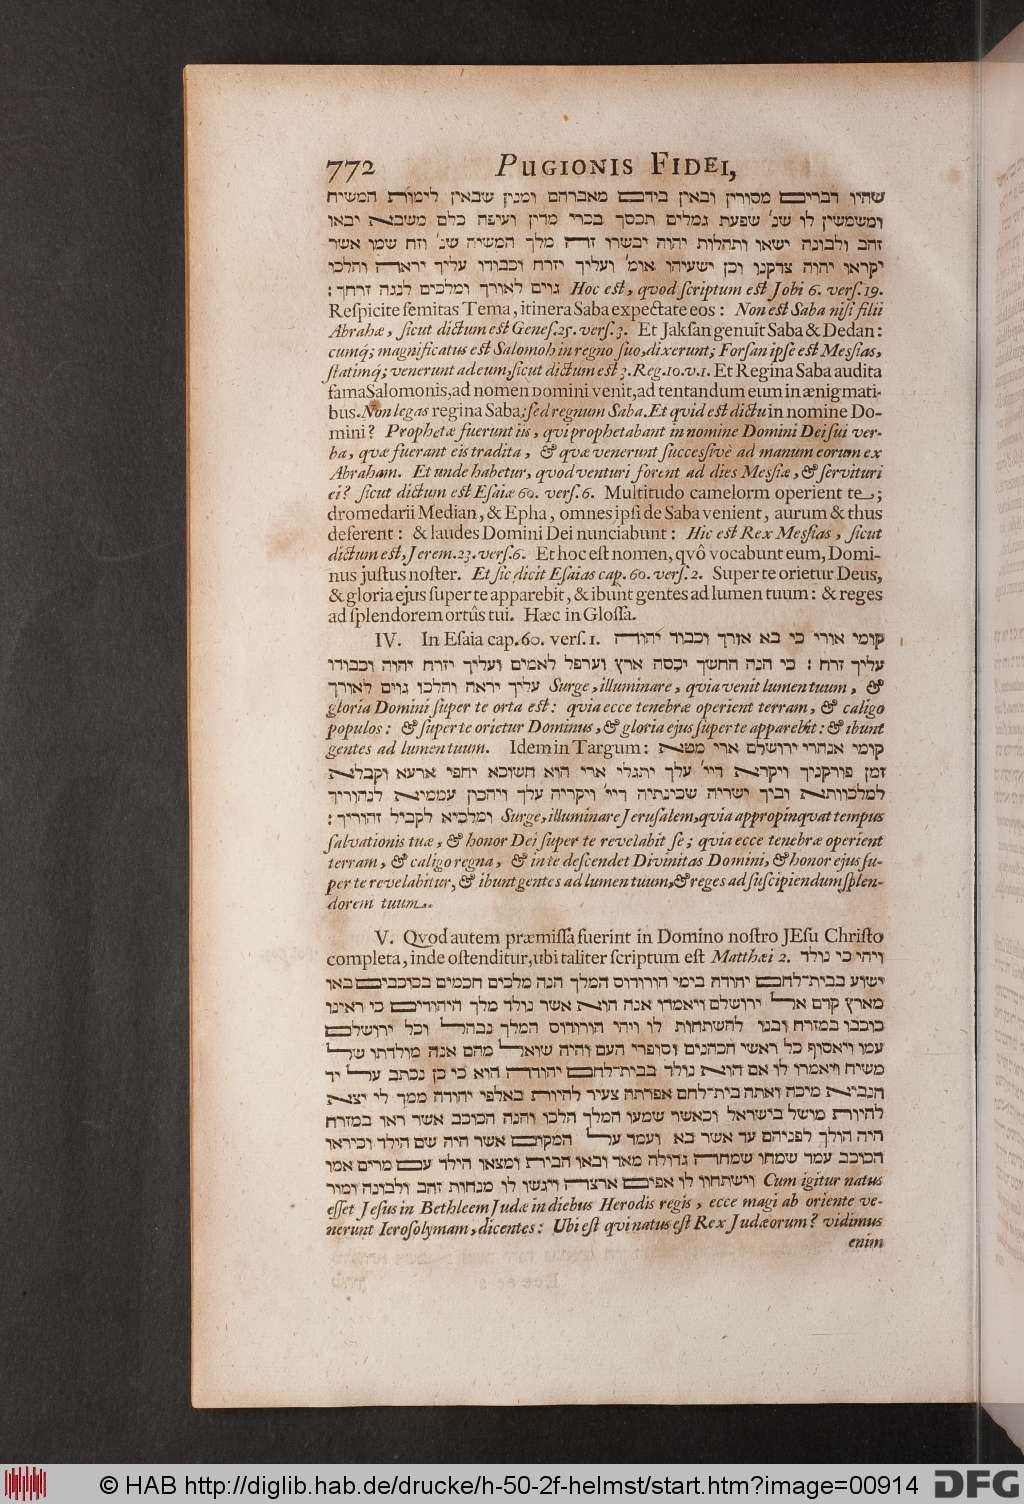 772 PUGIONIS FIDEI,
שהיו דברים מסורין ובאין בידם מאברהם ומנין שבאין לימות המשיח
ומשמשין לו שנ׳ שפעת גמלים תכסך בכרי מדין ועיפה כלם משבא יבאו
זהב ולבונה ישאו ותהלות יהוה יבשרו זה מלך המשיח שנ׳ וזה שמו אשר
יקראו יהוה צדקנו וכן ישעיהו אומ׳ ועליך יזרח וכבודו עליך יראה והלכו
גוים לאורך ומלכים לנגה זרחך: Hoc est, quod scriptum est Jobi 6. vers. 19.
Respicite semitas Tema, itinera Saba expectate eos: Non est Saba nisi filii
Abrahæ, sicut dictum est Genes. 25. vers. 3. Et Jaksan genuit Saba & Dedan:
cumq́; magnificatus est Salomoh in regno suo, dixerunt; Forsan ipse est Messias,
statimq́; venerunt ad eum, sicut dictum est 3. Reg. 10. v. 1. Et Regina Saba audita
fama Salomonis, ad nomen DOMINI venit, ad tentandum eum in ænigmati-
bus. Non legas regina Saba; sed regnum Saba. Et qvid est dictu in nomine Do-
mini? Prophetæ fuerunt iis, qvi prophetabant in nomine Domini Dei sui ver-
ba, qvæ fuerant eis tradita, & qvæ venerunt successivè ad manum eorum ex
Abraham. Et unde habetur, qvod venturi forent ad dies Messiæ, & servituri
ei? sicut dictum est Esaiæ 60. vers. 6. Multitudo camelorm operient te;
dromedarii Median, & Epha, omnes ipsi de Saba venient, aurum & thus
deferent: & laudes Domini Dei nunciabunt: Hic est Rex Messias, sicut
dictum est, Jerem. 23. vers. 6. Et hoc est nomen, qvô vocabunt eum, Domi-
nus justus noster. Et sic dicit Esaias cap. 60. vers. 2. Super te orietur Deus,
& gloria ejus super te apparebit, & ibunt gentes ad lumen tuum: & reges
ad splendorem ortûs tui. Hæc in Glossâ.
IV. In Esaia cap. 60. vers. 1. קומי אורי כי בא אורך וכבוד יהוה
עליך זרח: כי הנה החשך יכסה ארץ וערפל לאמים ועליך יזרח יהוה וכבודו
עליך יראה והלכו גוים לאורך Surge, illuminare, qvia venit lumen tuum, &
gloria Domini super te orta est: qvia ecce tenebræ operient terram, & caligo
populos: & super te orietur Dominus, & gloria ejus super te apparebit: & ibunt
gentes ad lumen tuum. Idem in Targum: קומי אנהרי ירושלם ארי מטא
זמן פורקניך ויקרא דיי׳ עלך יתגלי ארי הוא חשוכא יחפי ארעא וקבלא
למלכוותא וביך ישריה שכינתיה דיי׳ ויקריה עלך ויהכון עממיא לנהוריך
ומלכיא לקביל זהוריך: Surge, illuminare Jerusalem, qvia appropinqvat tempus
salvationis tuæ, & honor Dei super te revelabit se; qvia ecce tenebræ operient
terram, & caligo regna, & in te descendet Divinitas Domini, & honor ejus su-
per te revelabitur, & ibunt gentes ad lumen tuum, & reges ad suscipiendum splen-
dorem tuum.
V. Qvod autem præmissa fuerint in Domino nostro JEsu Christo
completa, inde ostenditur, ubi taliter scriptum est Matthæi 2. ויהי כי נולד
ישוע בבית־לחם יהודה בימי הורודוס המלך הנה מלכים חכמים בכוכבים באו
מארץ קדם אל ירושלם ויאמרו אנה הוא אשר נולד מלך היהודים כי ראינו
כוכבו במזרח ובנו להשתחות לו ויהי הורודוס המלך נבהל וכל ירושלם
עמו ויאסוף כל ראשי הכהנים וסופרי העם והיה שואל מהם אנה מולדתו של
משיח ויאמרו לו אם הוא נולד בבית־לחם יהודה הוא כי כן נכתב על יד
הנביא מיכה ואתה בית־לחם אפרתה צעיר להיות באלפי יהודה ממך לי יצא
להיות מושל בישראל וכאשר שמעו המלך הלכו והנה הכוכב אשר ראו במזרח
היה הולך לפניהם עד אשר בא ועמד על המקום אשר היה שם הילד וכיראו
הכוכב עמד שמחו שמחה גדולה מאד ובאו הבית ומצאו הילד עם מרים אמו
וישתחוו לו אפים ארצה ויגשו לו מנחות זהב ולבונה ומור Cum igitur natus
esset Jesus in Bethleem Judæ in diebus Herodis regis, ecce magi ab oriente ve-
nerunt Ierosolymam, dicentes: Ubi est qvi natus est Rex Judæorum? vidimus
enim
© HAB http://diglib.hab.de/drucke/h-50-2f-helmst/start.htm?image=00914
DFG